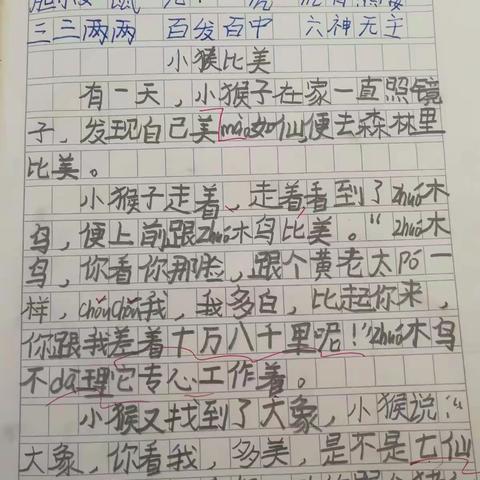 三三两两 百发百中 六神无主
小猴比美
有一天，小猴子在家一直照镜
子，发现自己美mào如仙便去森林里
比美。
小猴子走着，走着看到了zhuó木
鸟，便上前跟zhuó木鸟比美。“zhuó木
鸟，你看你那脸，跟个黄老太pó一
样，chǒuchǒu我，我多白，比起你来，
你跟我差着十万八千里呢！”zhuó木鸟
不dā理它专心工作着。
小猴又找到了大象，小猴说：“
大象，你看我，多美，是不是七仙